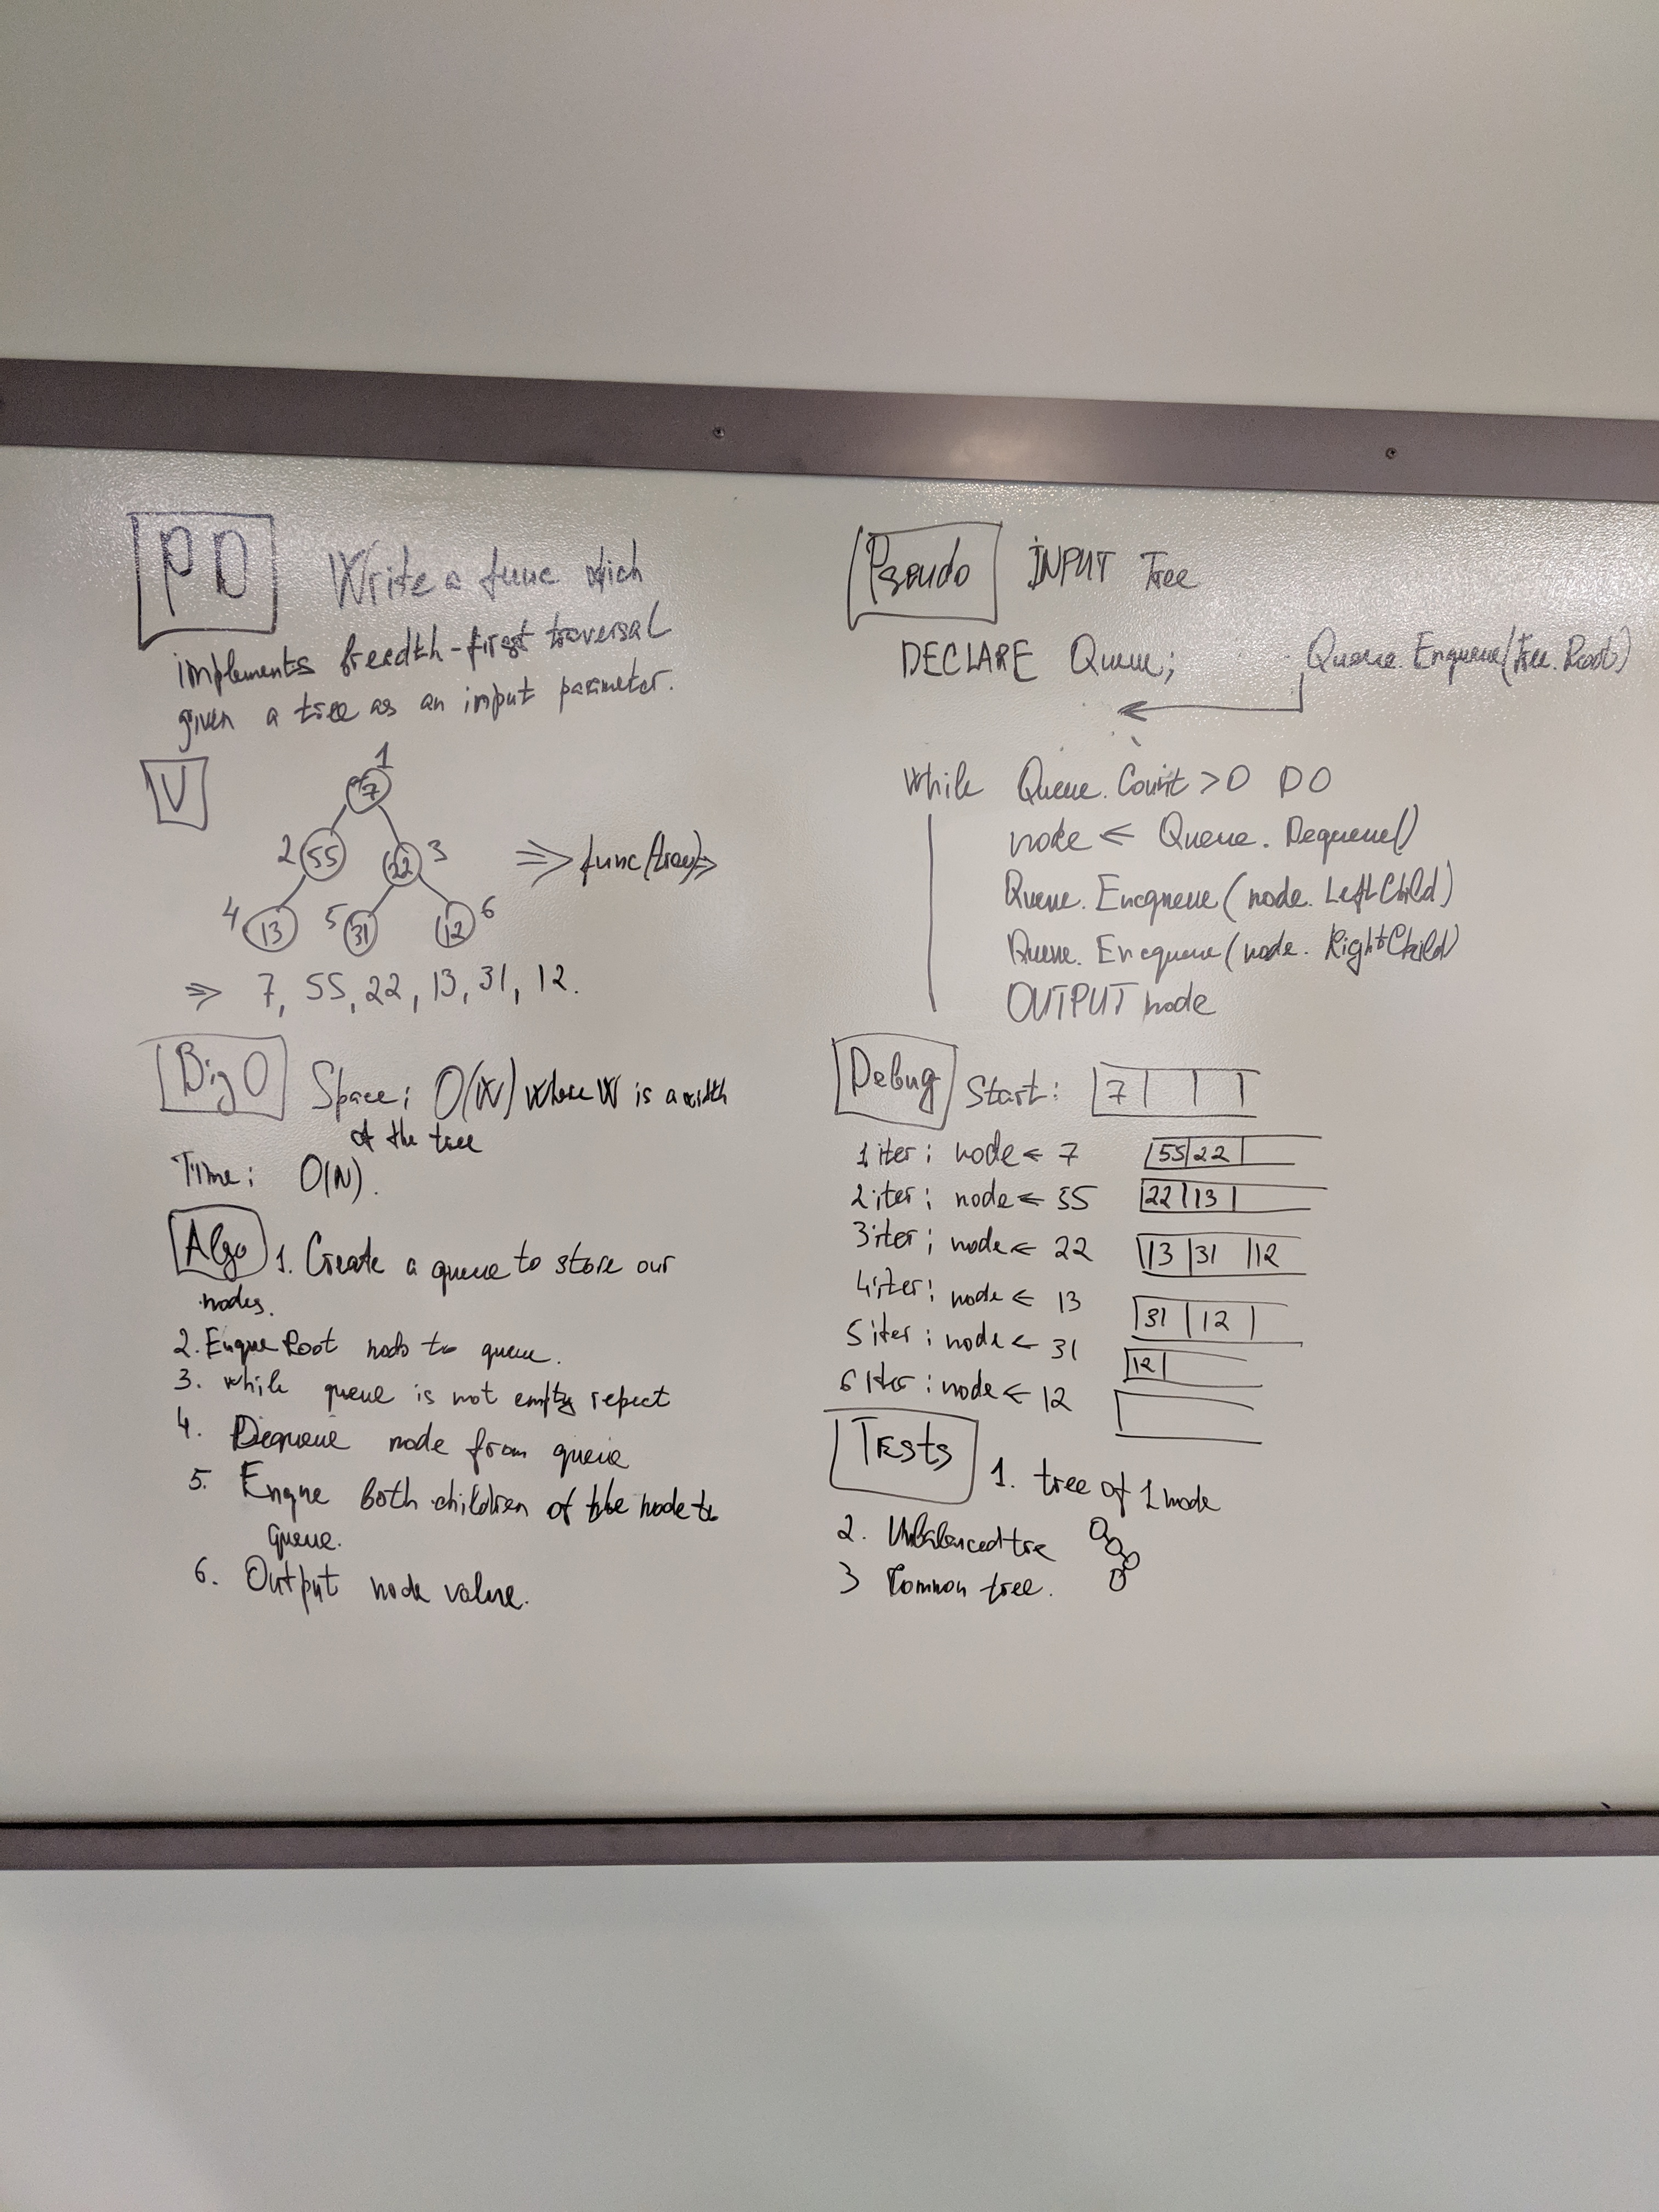 PD Write a func which
implements breadth-first traversal
given a tree as an input parameter.
V
1
7
2 55 22 3
⇒ func(tree)⇒
4 13 5 31 12 6
⇒ 7, 55, 22, 13, 31, 12.
Big O Space: O(W) where W is a width
of the tree
Time: O(N).
Algo 1. Create a queue to store our
nodes.
2. Enque Root node to queue.
3. while queue is not empty repeat
4. Dequeue node from queue
5. Enque both children of the node to
queue.
6. Output node value.
Pseudo INPUT Tree
DECLARE Queue; Queue.Enqueue(tree.Root)
←
while Queue.Count > 0 DO
node ← Queue.Dequeue()
Queue.Encqueue(node.LeftChild)
Queue.Encqueue(node.RightChild)
OUTPUT node
Debug Start: 7
1 iter: node ← 7 55 22
2 iter: node ← 55 22 13
3 iter; node ← 22 13 31 12
4 iter: node ← 13 31 12
5 iter: node ← 31 12
6 iter: node ← 12
Tests 1. tree of 1 node
2. Unbalanced tree
3 Common tree.